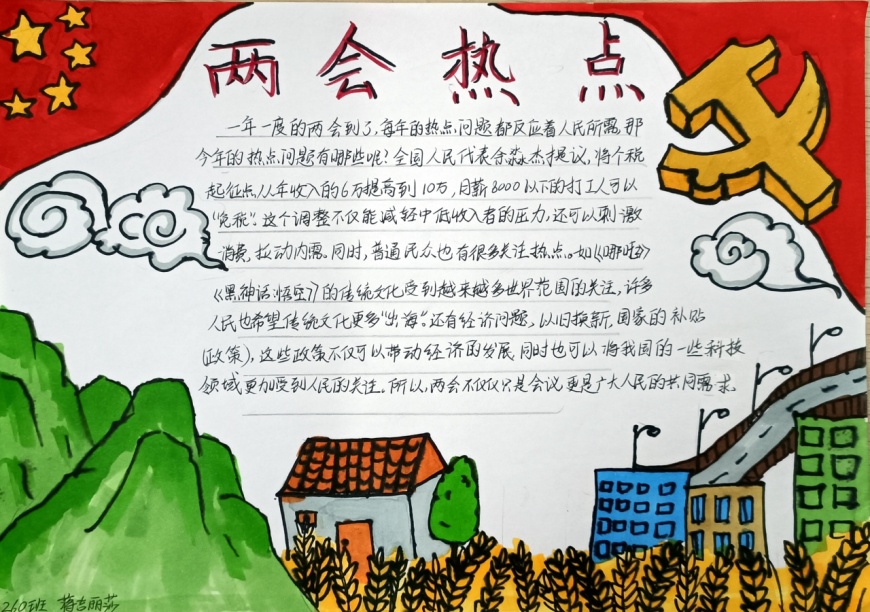 两会热点
一年一度的两会到了,每年的热点问题都反应着人民所需,那
今年的热点问题有哪些呢?全国人民代表余淼杰提议,将个税
起征点,从年收入的6万提高到10万,月薪8000以下的打工人可以
“免税”。这个调整不仅能减轻中低收入者的压力,还可以刺激
消费,拉动内需。同时,普通民众也有很多关注热点。如《哪吒》
《黑神话:悟空》的传统文化受到越来越多世界范围的关注,许多
人民也希望传统文化更多“出海”。还有经济问题,以旧换新,国家的补贴
(政策),这些政策不仅可以带动经济的发展,同时也可以将我国的一些科技
领域更加受到人民的关注。所以,两会不仅仅只是会议,更是广大人民的共同需求。
260班 蒋吉丽莎